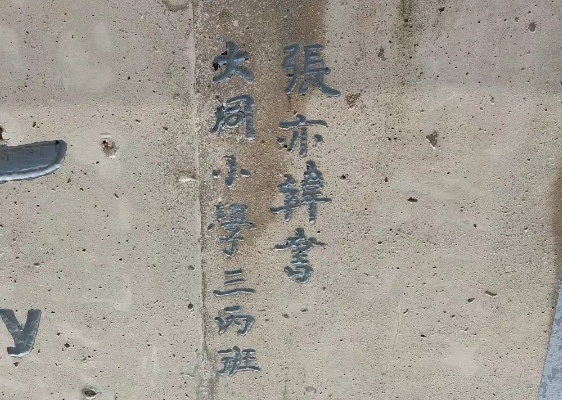 張亦韓書
大同小學三丙班
y